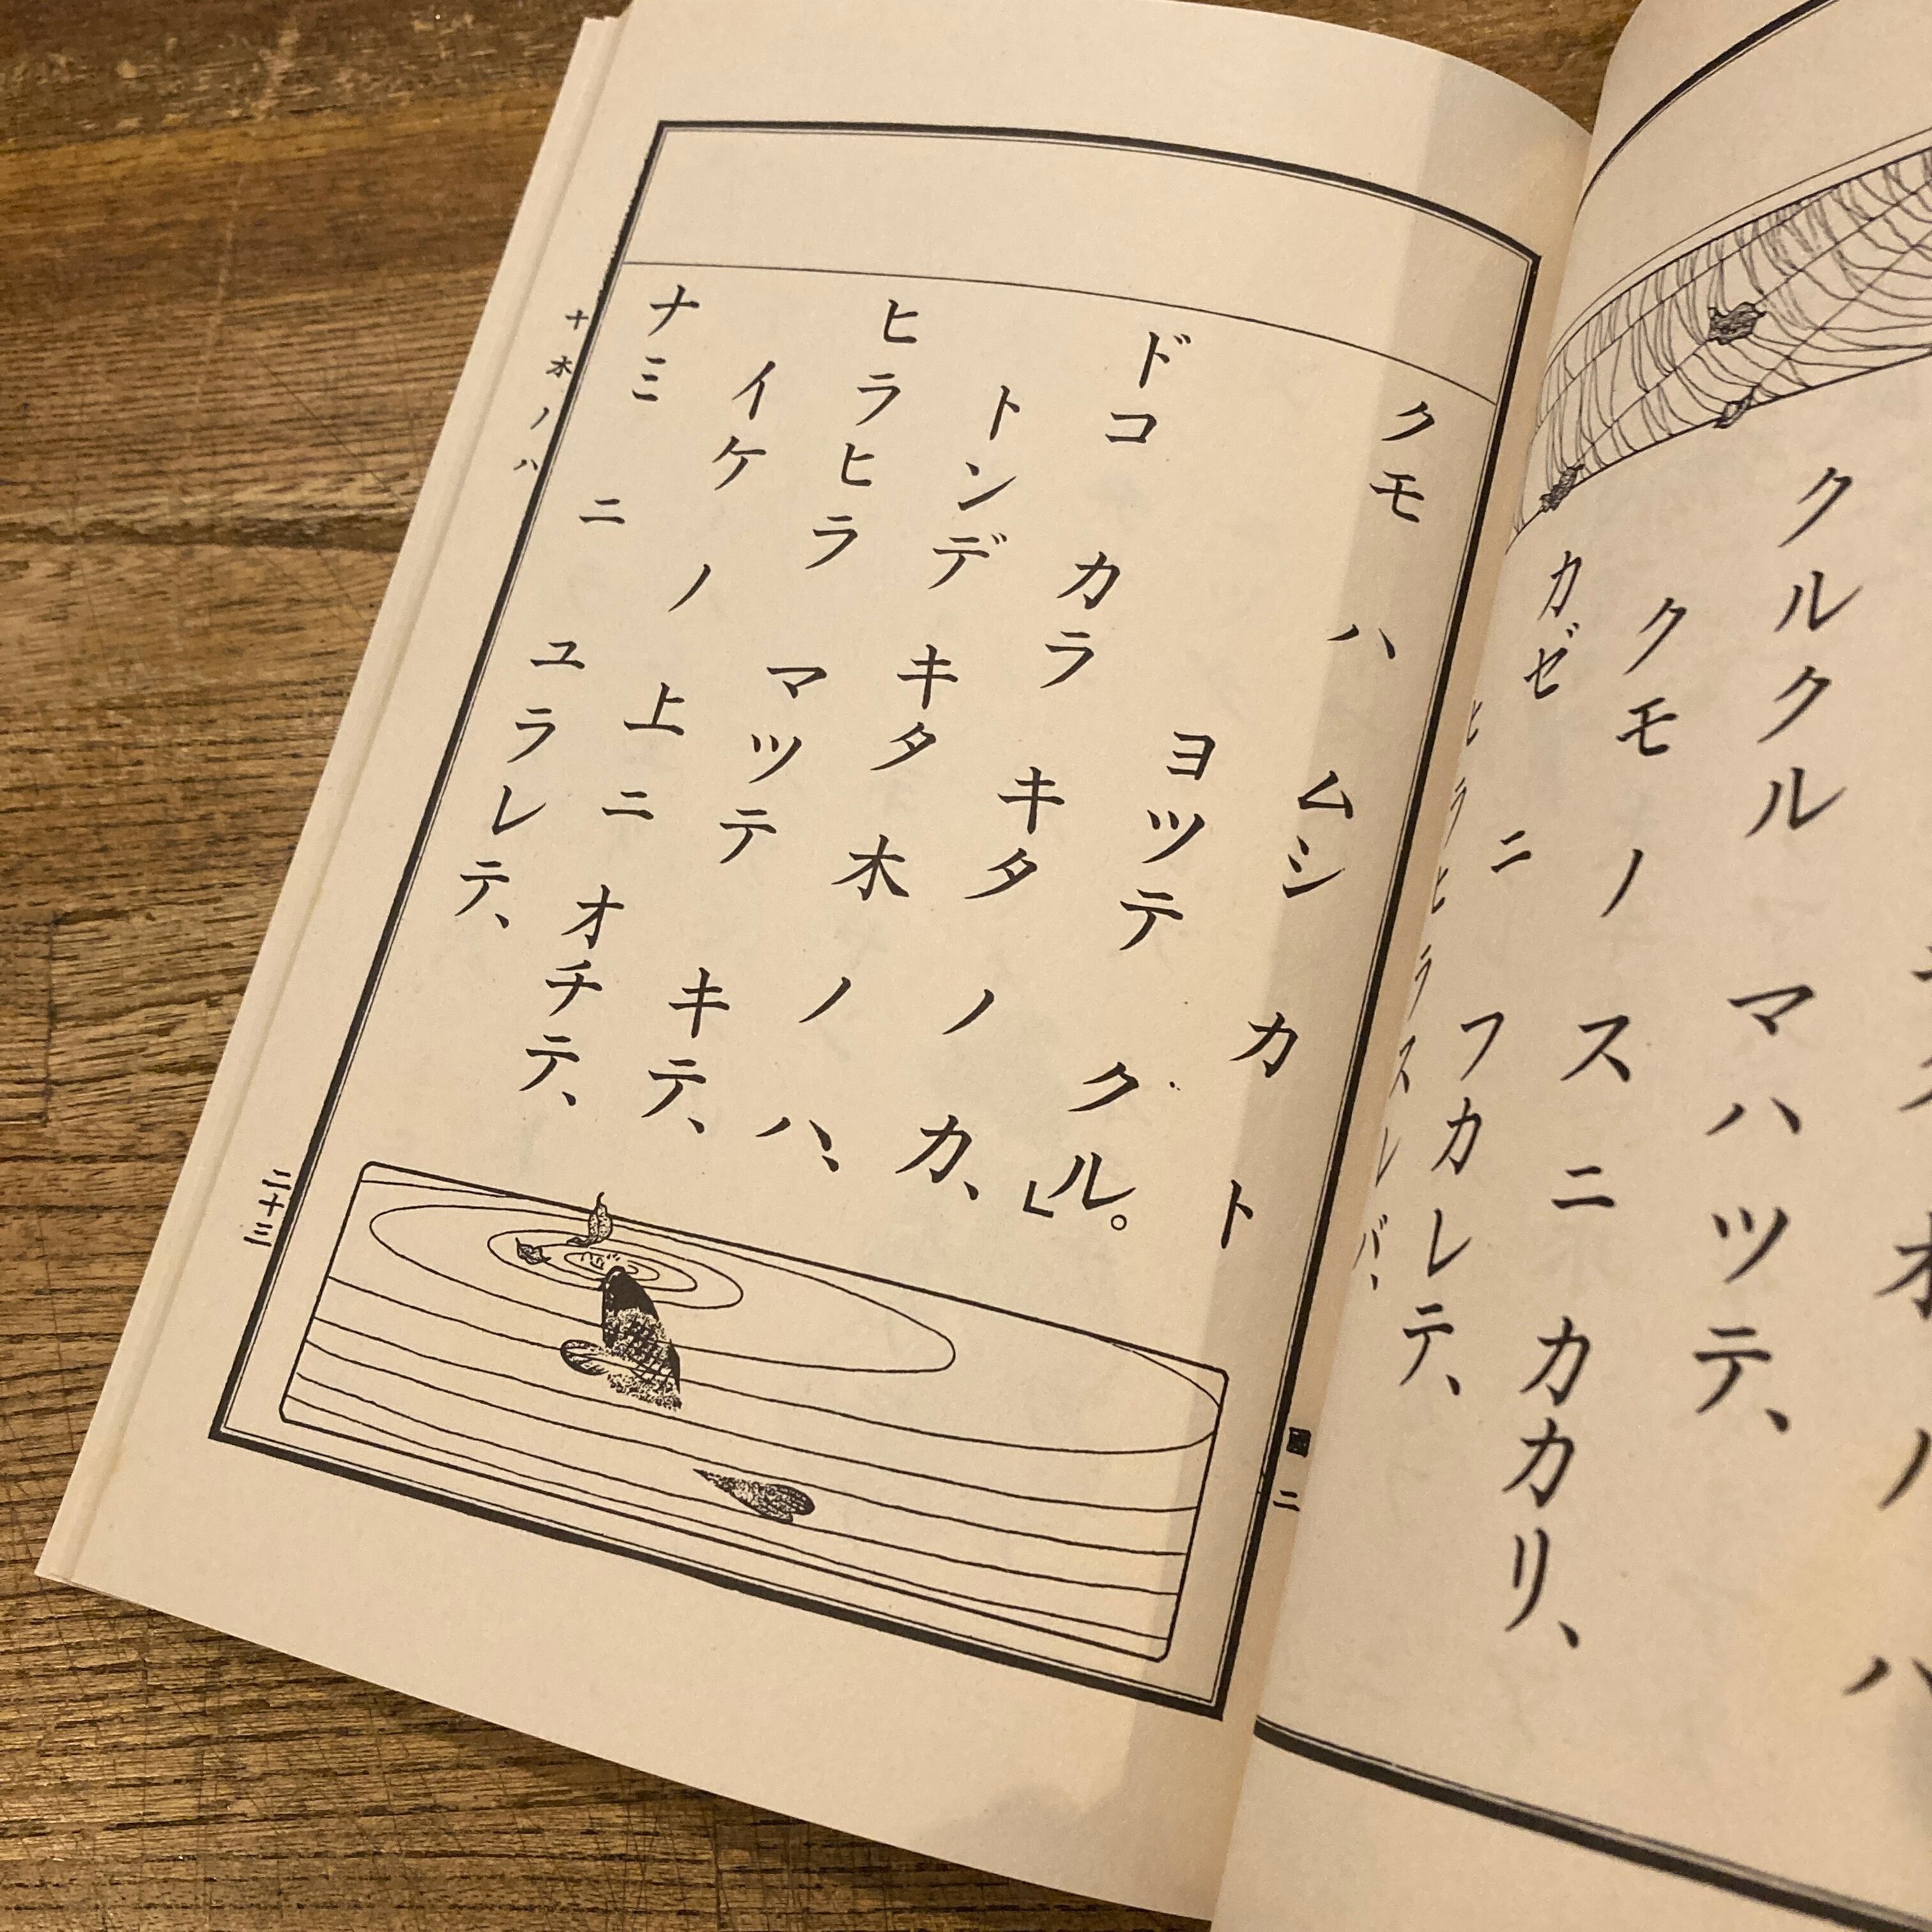 クルクル マハツテ、
クモ ノ スニ カカリ、
カゼ ニ フカレテ、
ヒラヒラ スレバ、
二
クモ ハ ムシ カ ト
ヨツテ クル。
ドコ カラ キタ ノ カ、」
トンデ キタ 木 ノ ハ、
ヒラヒラ マツテ キテ、
イケ ノ 上ニ オチテ、
ナミ ニ ユラレテ、
十 木 ノ ハ
二十三